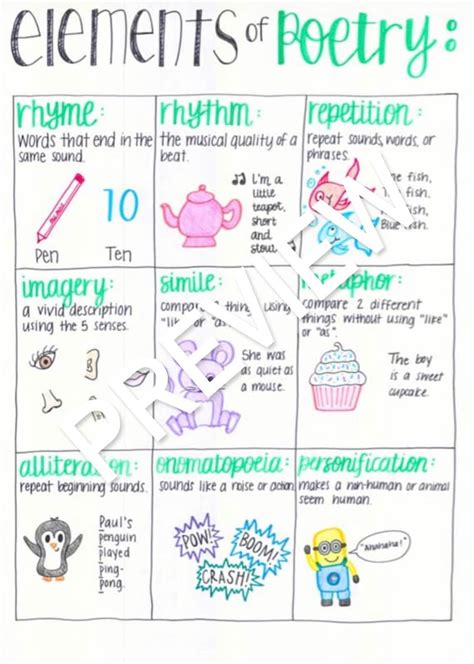 elements of Poetry:
rhyme:
Words that end in the
same sound.
Pen
10
Ten
rhythm:
the musical quality of a
beat.
I'm a
little
teapot,
short
and
stout
repetition:
repeat sounds, words, or
phrases.
fish,
fish,
fish,
Blue fish.
imagery:
a vivid description
using the 5 senses.
simile:
compare 2 things using
"like" or "as".
She was
as quiet as
a mouse.
metaphor:
compare 2 different
things without using "like"
or "as".
The boy
is a sweet
cupcake.
alliteration:
repeat beginning sounds.
Paul's
penguin
played
ping-
pong.
onomatopoeia:
sounds like a noise or action.
POW!
BOOM!
CRASH!
personification:
makes a non-human or animal
seem human.
PREVIEW